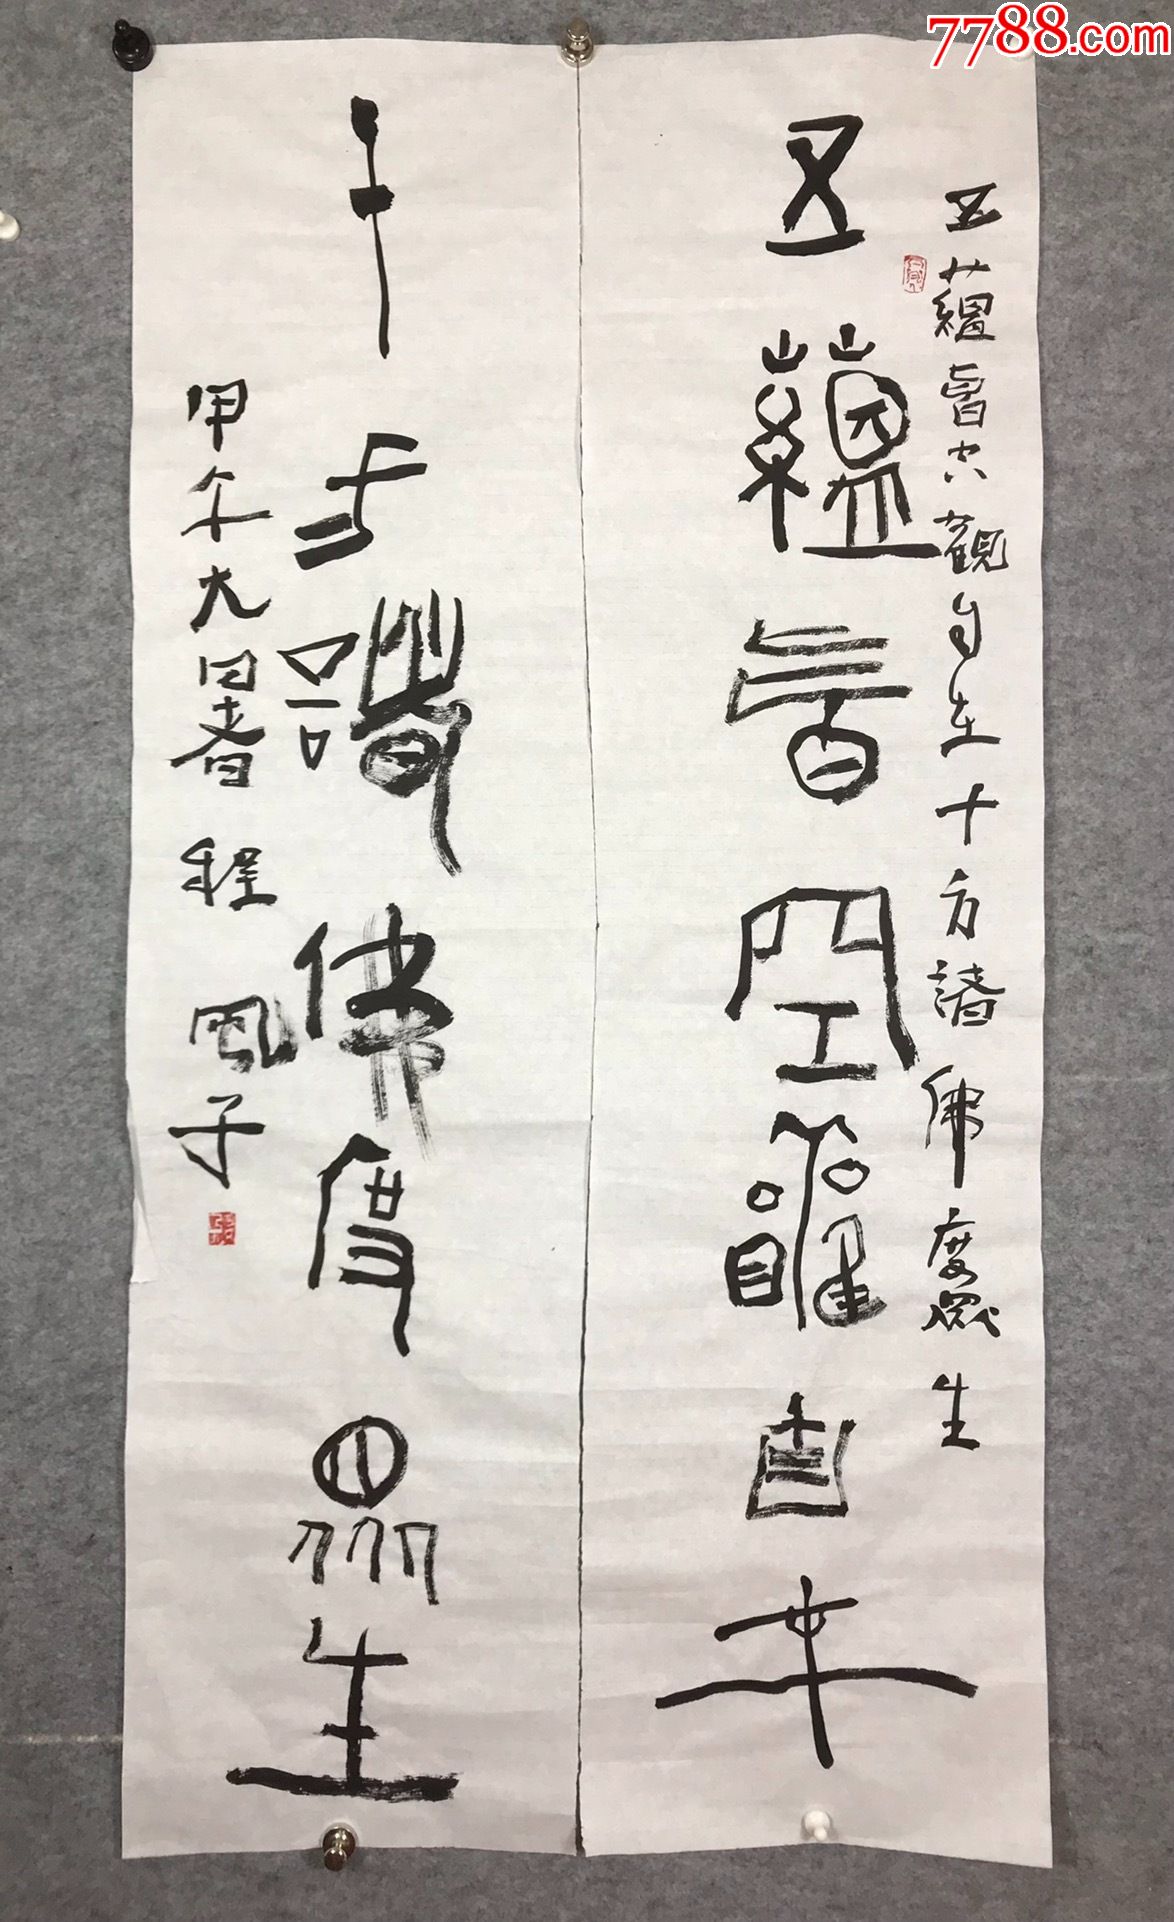 7788.com
五蘊皆空觀自在十方諸佛度眾生
五蘊皆空觀自在
十方諸佛度眾生
甲午大暑 程風子